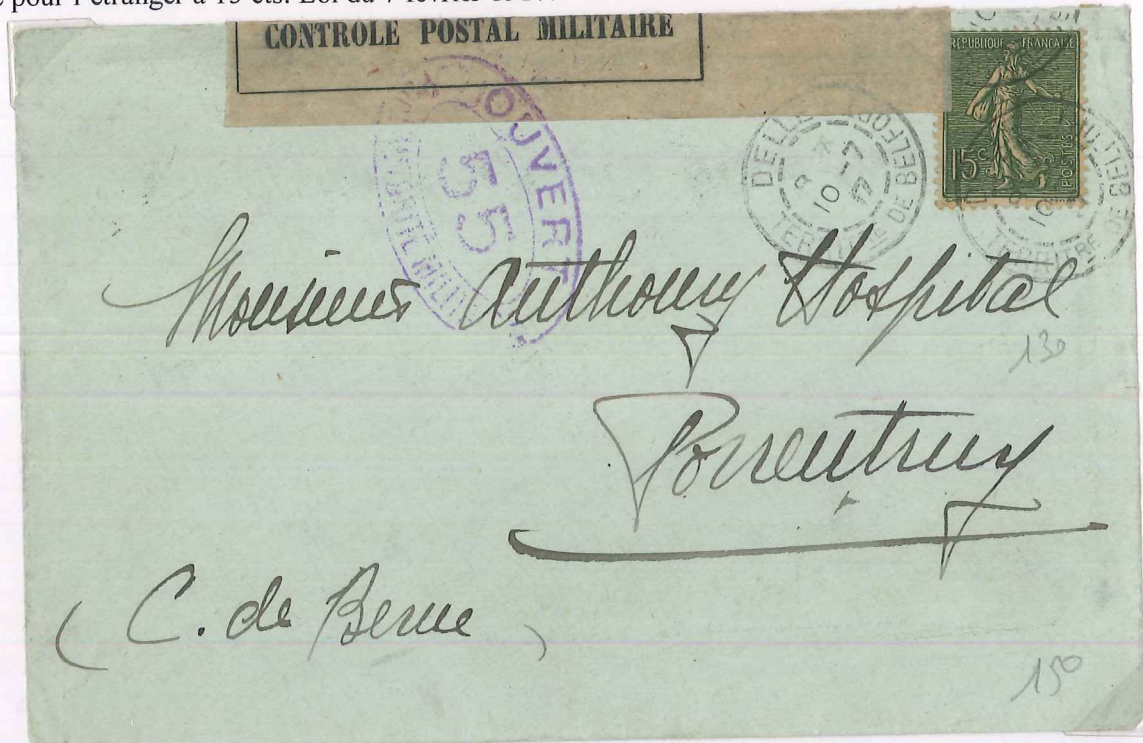 pour l'étranger à 15 cts. Loi du 7 février
CONTROLE POSTAL MILITAIRE
REPUBLIQUE FRANÇAISE
15c
POSTES
OUVERT
55
DELLE
10-7
17
BELFORT
10
Monsieur Anthony Hospital
130
Porrentruy
(C. de Berne)
150